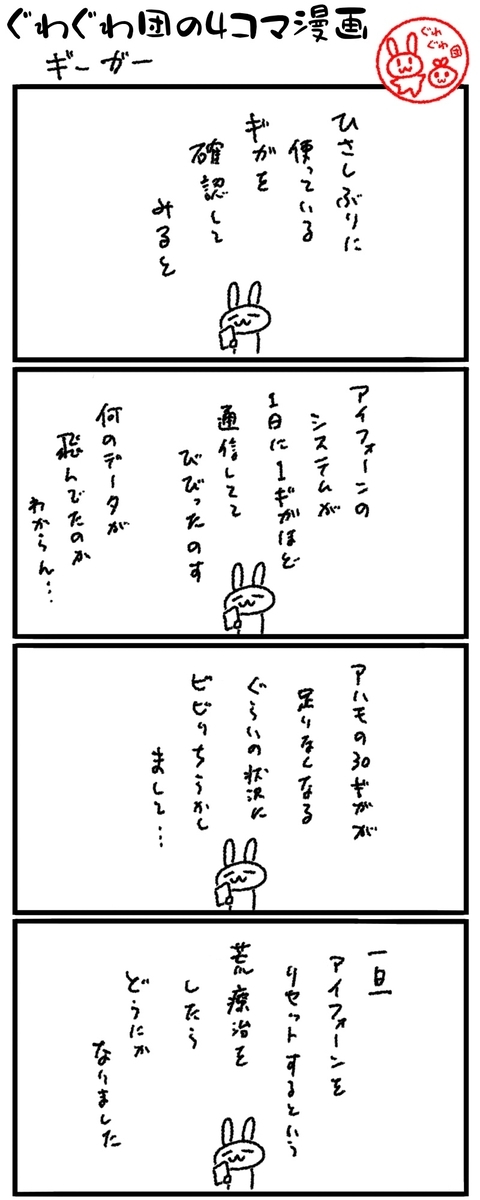 ぐわぐわ団の4コマ漫画
ギーガー
ぐわ
ぐわ
団
ひさしぶりに
使っている
ギガを
確認して
みると
アイフォーンの
システムが
1日に1ギガほど
通信してて
びびったのす
何のデータが
飛んでたのか
わからん…
アハモの30ギガが
足りなくなる
ぐらいの状況に
ビビりちらかし
まして…
一旦
アイフォーンを
リセットするという
荒療治を
したら
どうにか
なりました